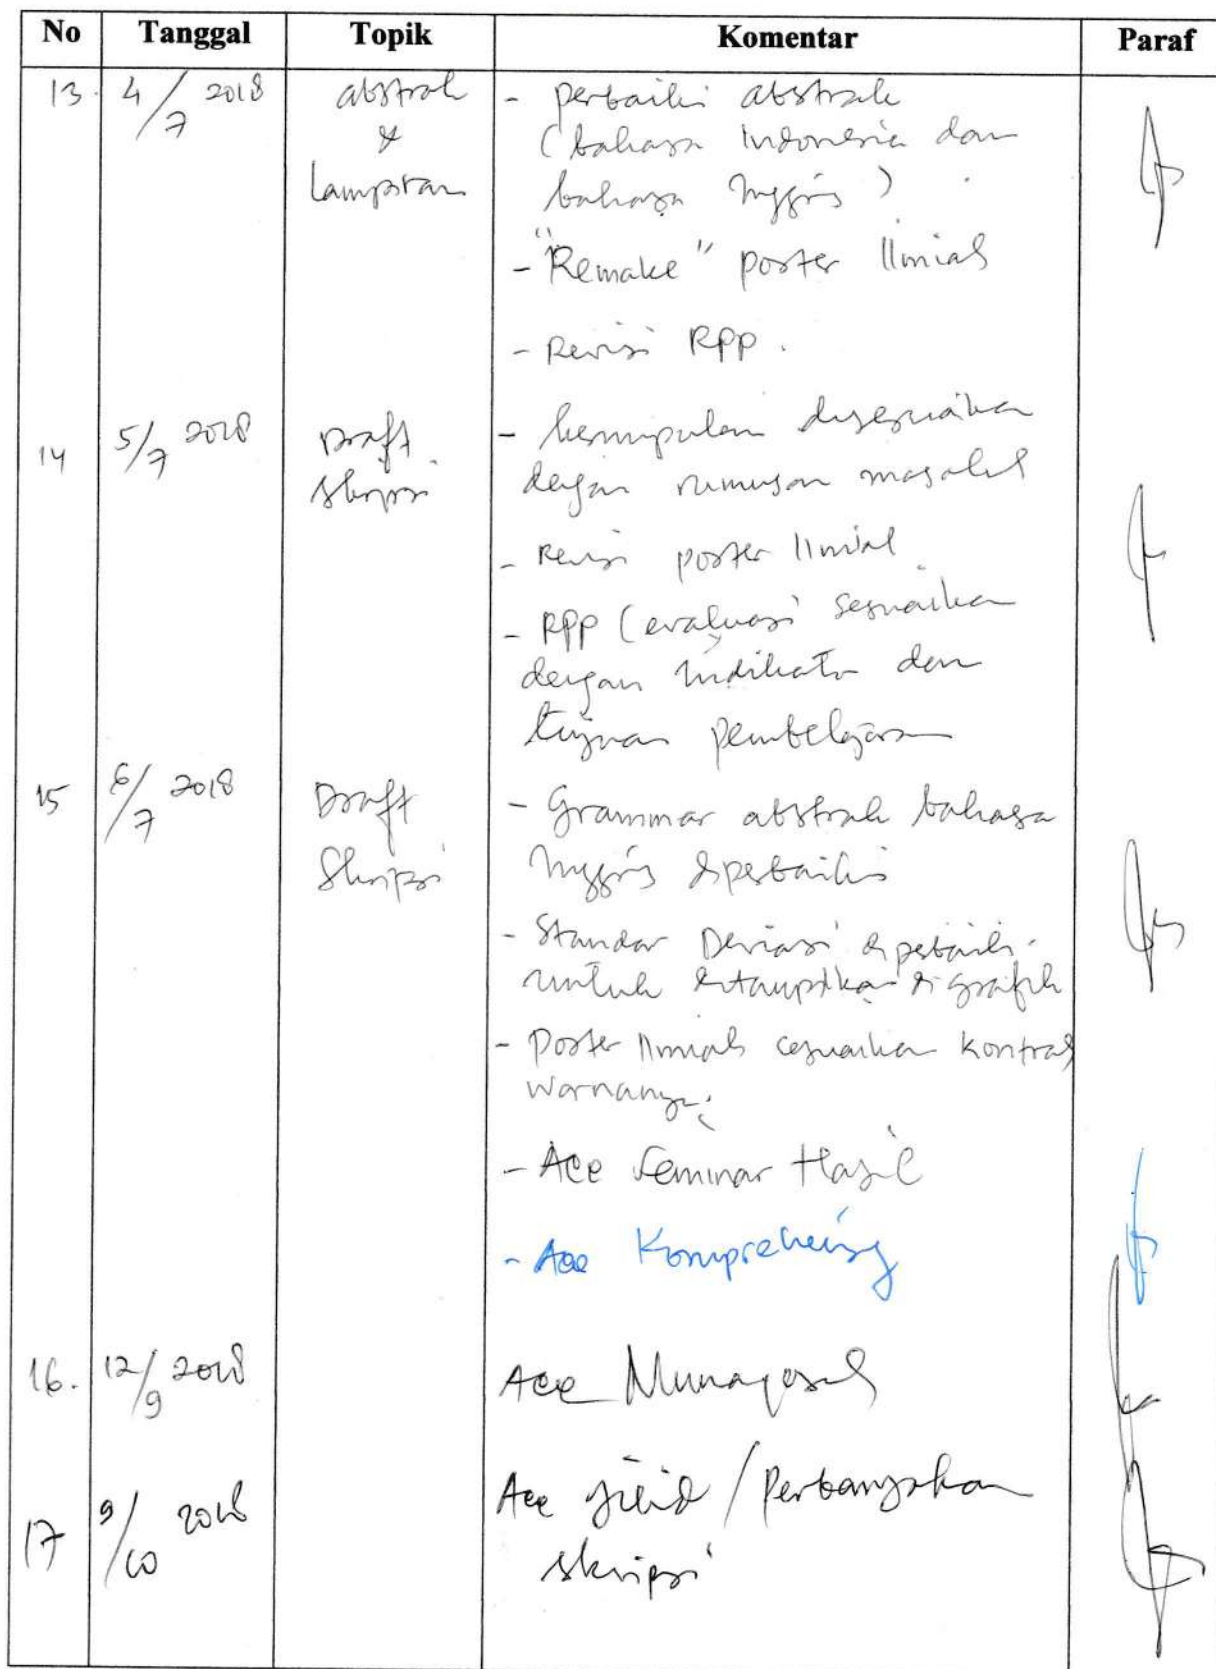 No Tanggal Topik Komentar Paraf
13. 4/7 2018 abstrak - perbaiki abstrak
& (bahasa Indonesia dan
Lampiran bahasa Inggris)
- "Remake" poster Ilmiah
- Revisi RPP.
14 5/7 2018 Draft - kesimpulan disesuaikan
Skripsi dengan rumusan masalah
- Revisi poster Ilmiah
- RPP (evaluasi sesuaikan
dengan indikator dan
tujuan pembelajaran
15 6/7 2018 Draft - Grammar abstrak bahasa
Skripsi Inggris diperbaiki
- Standar Deviasi diperbaiki
untuk ditampilkan di grafik
- Poster Ilmiah sesuaikan kontras
warnanya.
- Acc Seminar Hasil
- Acc Komprehensif
16. 12/9 2018 Acc Munaqosah
17 9/10 2018 Acc jilid / Perbanyakan
skripsi